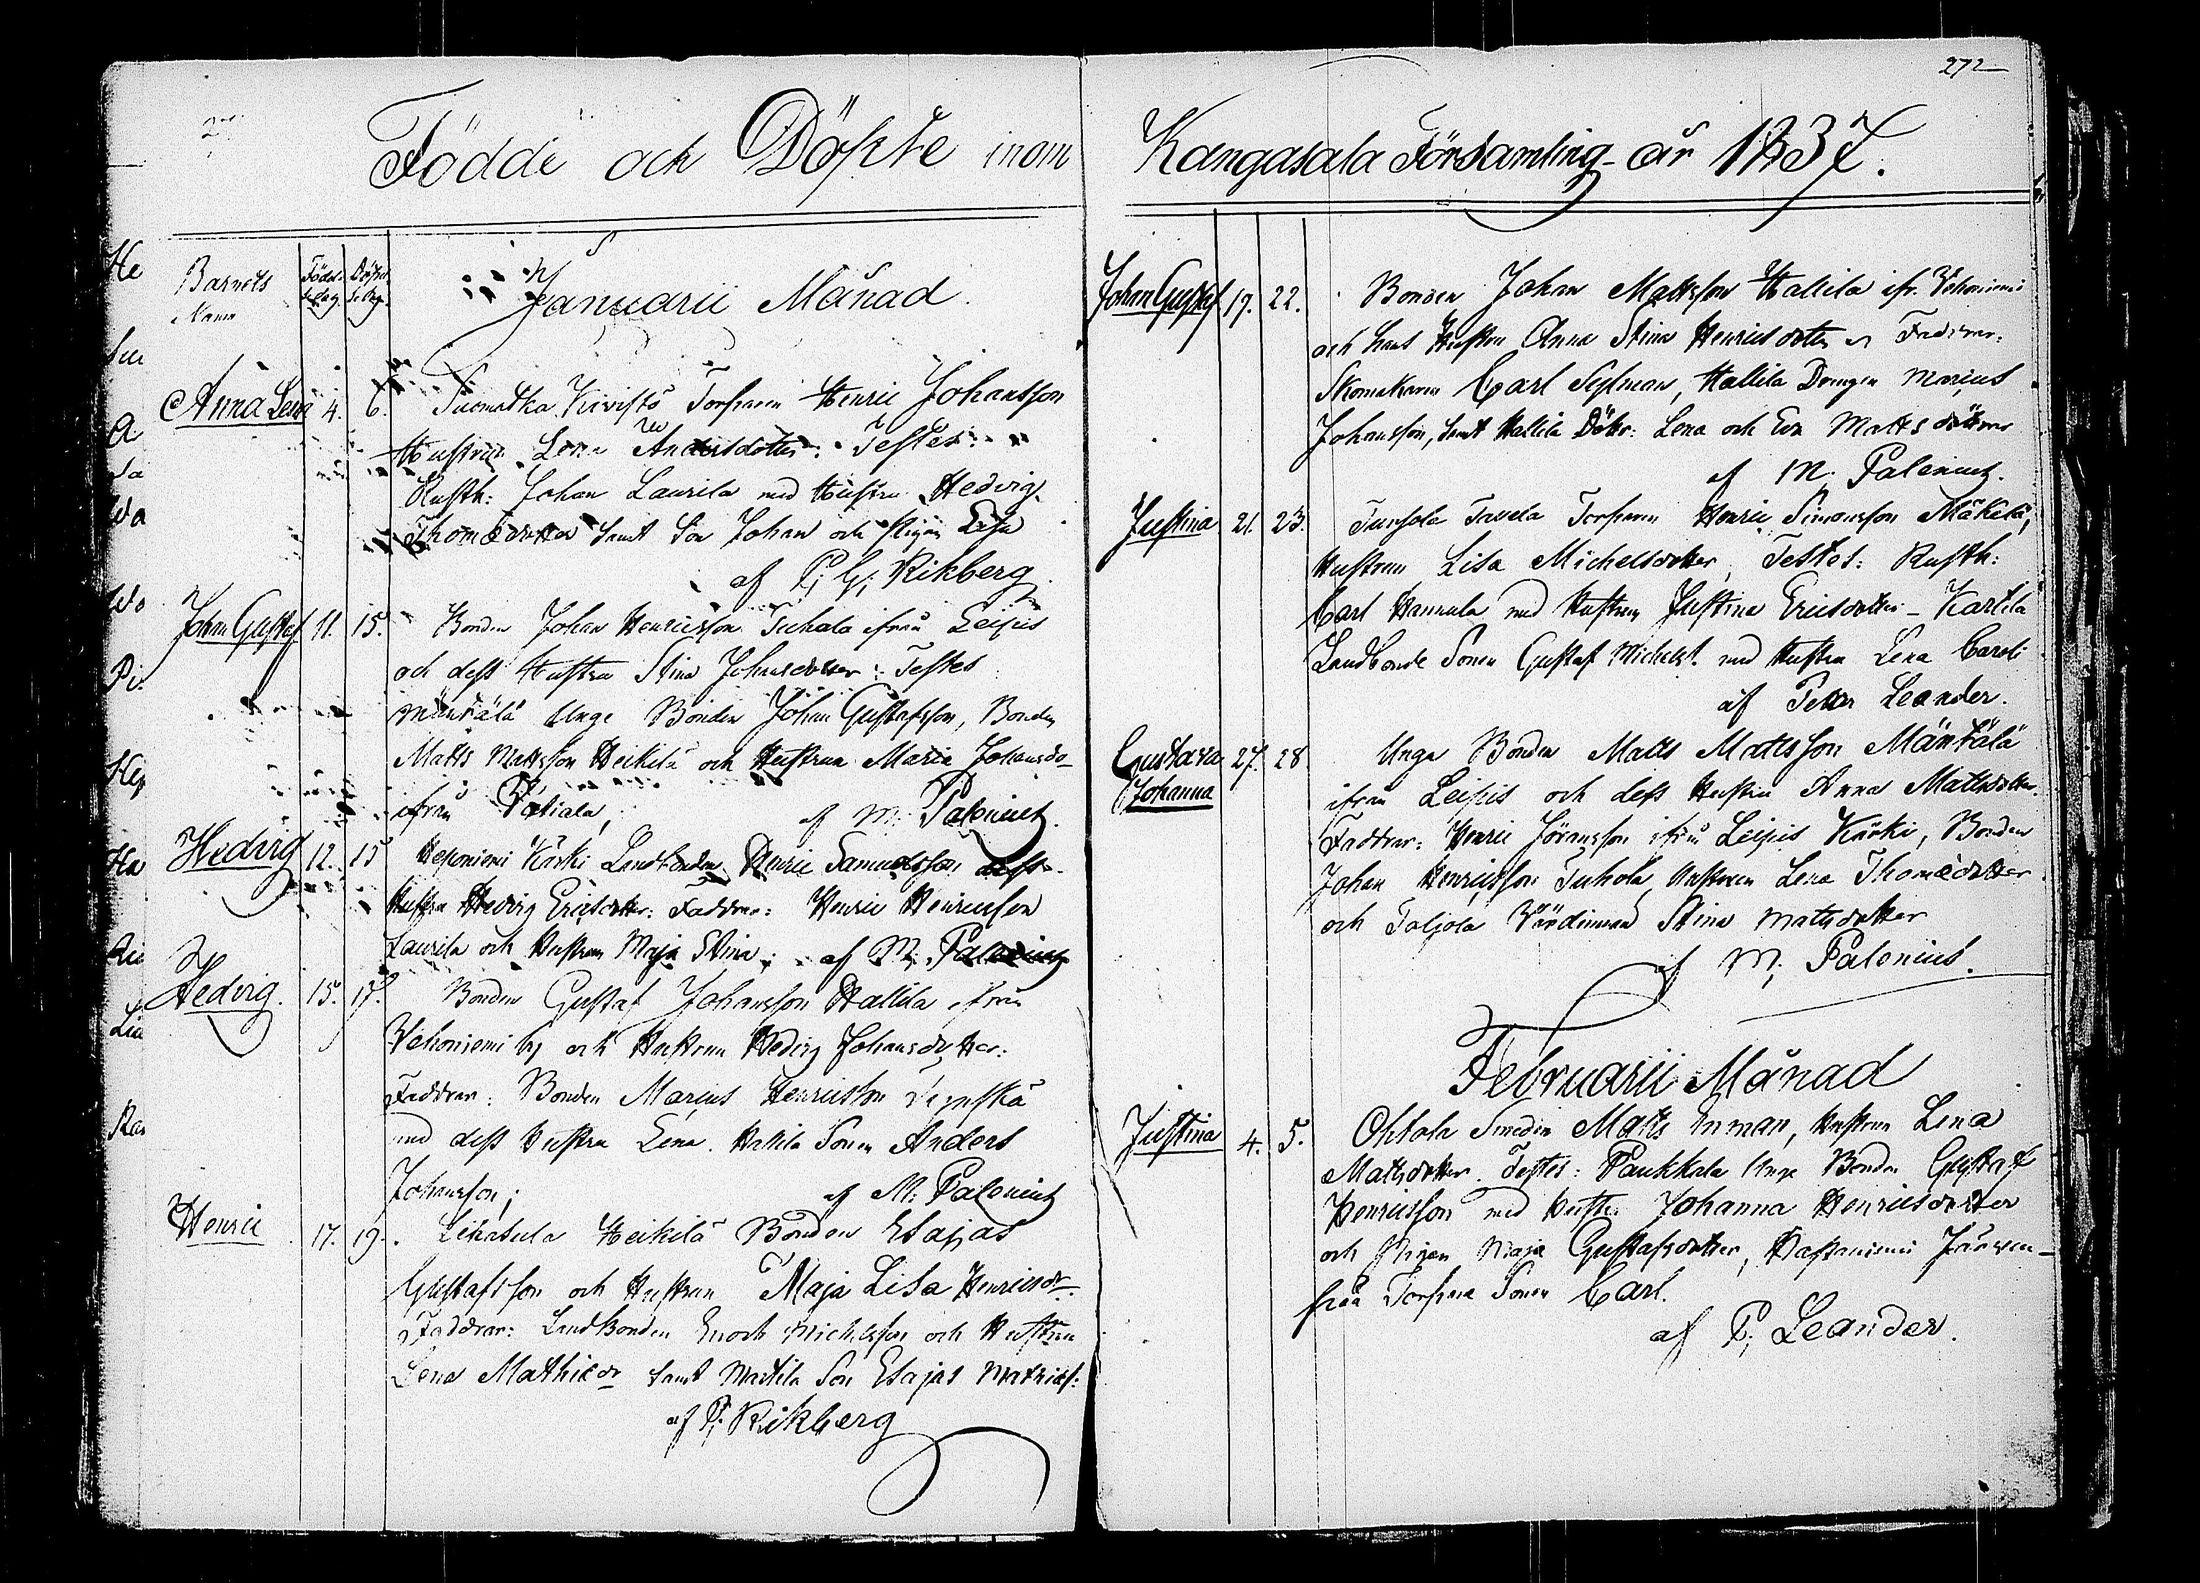 272
Födde och Döpte inom Kangasala Församling år 1837.
Barnets Namn
Födelsedag.
Döpelsedag.
Januarii Månad.
Anna Lena 4. 6. Suomatka Kivistö Torparen Henric Johansson
Hustrun Lena Andersdotter. Testes:
Rusth: Johan Laurila med Hustru Hedvig
Thomædotter samt Son Johan och Pigan
af P. G. Rikberg
Johan Gustaf 11. 15. Bonden Johan Henricsson Tuhola ifrån Leipis
och dess Hustru Stina Johansdotter: Testes
Mäntälä Unge Bonden Johan Gustafsson, Bonden
Matts Mattsson Heikilä och Hustrun Maria Johansdo-
ifrån af M. Palonius.
Hedvig 12. 15 Heponiemi Kärki Landbonden Henric Samuelsson dess
Hustru Hedvig Ericsdotter: Faddrar: Henric Henricsson
Laurila och Hustrun Maja Stina; af M. Palonius
Hedvig. 15. 17. Bonden Gustaf Johansson Hallila ifrån
Vehoniemi by och Hustrun Hedvig Johansdotter:
Faddrar: Bonden Marcus Henricsson
med dess Hustru Lena. Hallila Sonen Anders
Johansson; af M. Palonius
Henric 17. 19. Lihasula Heikilä Bonden Esajas
Gustafsson och Hustrun Maja Lisa Henricsdr.
Faddrar: Landbonden Enoch Michelsson och Hustrun
Lena Mathiædr samt Mattila Son Esajas Mathiæs:
af P. Rikberg
Johan Gustaf 19. 22. Bonden Johan Mattsson Hallila ifr. Vehoniemi
och hans Hustru Anna Stina Henricsdotter Faddrar:
Skomakaren Carl Sylman, Hallila Drengen Marcus
Johansson, samt Hallila Döttr: Lena och Eva Mattsdöttrar
af M. Palonius.
Justina 21. 23. Tursola Tavela Torparen Henric Simonsson Mäkelä,
Hustrun Lisa Michelsdotter, Testes: Rusth:
Carl Hannula med Hustrun Justina Ericsdotter - Kartila
Landbonde Sonen Gustaf Michelss. med Hustru Lena Caroli
af Petter Leander.
Gustava Johanna 27. 28 Unga Bonden Matts Mattsson Mäntälä
ifrån Leipis och dess Hustru Anna Mattsdotter.
Faddrar: Henric Göransson ifrån Leipis Kärki, Bonden
Johan Henricsson Tuhola, Hustrun Lena Thomædotter
och Toljola Värdinnan Stina Mattsdotter
af M. Palonius.
Februarii Månad
Justina 4. 5. Ohtola Smeden Matts Enman, Hustrun Lena
Mattsdotter. Testes: Paukkala Unge Bonden Gustaf
Henricsson med Hustr. Johanna Henricsdotter
och Pigan Maja Gustafsdotter, Haftaniemi Järven-
pää Torpare Sonen Carl.
af P. Leander.